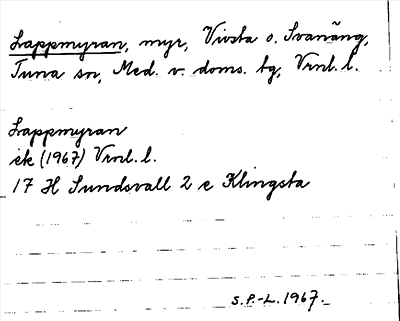 Lappmyran, myr, Vivsta o. Svanäng,
Tuna sn, Med. v. doms. tg, Vrnl. l.
Lappmyran
ek (1967) Vrnl. l.
17 H Sundsvall 2 c Klingsta
S.P.-L. 1967.